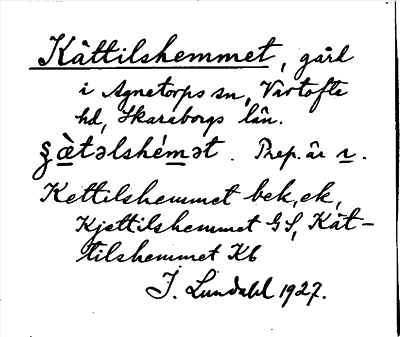 Kättilshemmet, gård
i Agnetorps sn, Vartofta
hd, Skaraborgs län.
ʂæ̀təlshémət. Prep. är ɪ.
Kettilshemmet bek, ek,
Kjettilshemmet GS, Kät-
tilshemmet Kb
I. Lundahl 1927.